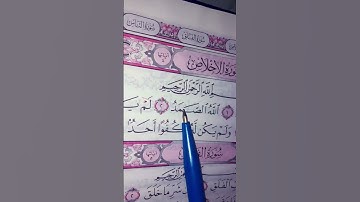 سُورَةُ النَّاسِ سُورَةُ الفَلَقِ
سُورَةُ الإِخْلَاصِ
اللَّهِ الرَّحْمَنِ الرَّحِيمِ
١ اللَّهُ الصَّمَدُ ٢ لَمْ يَ
وَلَمْ يَكُن لَّ كُفُوًا أَحَدٌ
سُورَةُ الفَلَقِ
الرَّحِيمِ
الْفَلَقِ شَرِّ مَا خَلَقَ